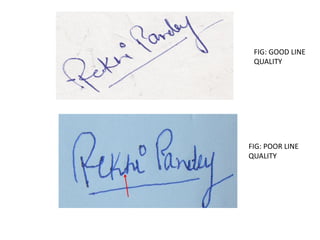 Rekhi Pandey
FIG: GOOD LINE
QUALITY
Rekhi Pandey
FIG: POOR LINE
QUALITY